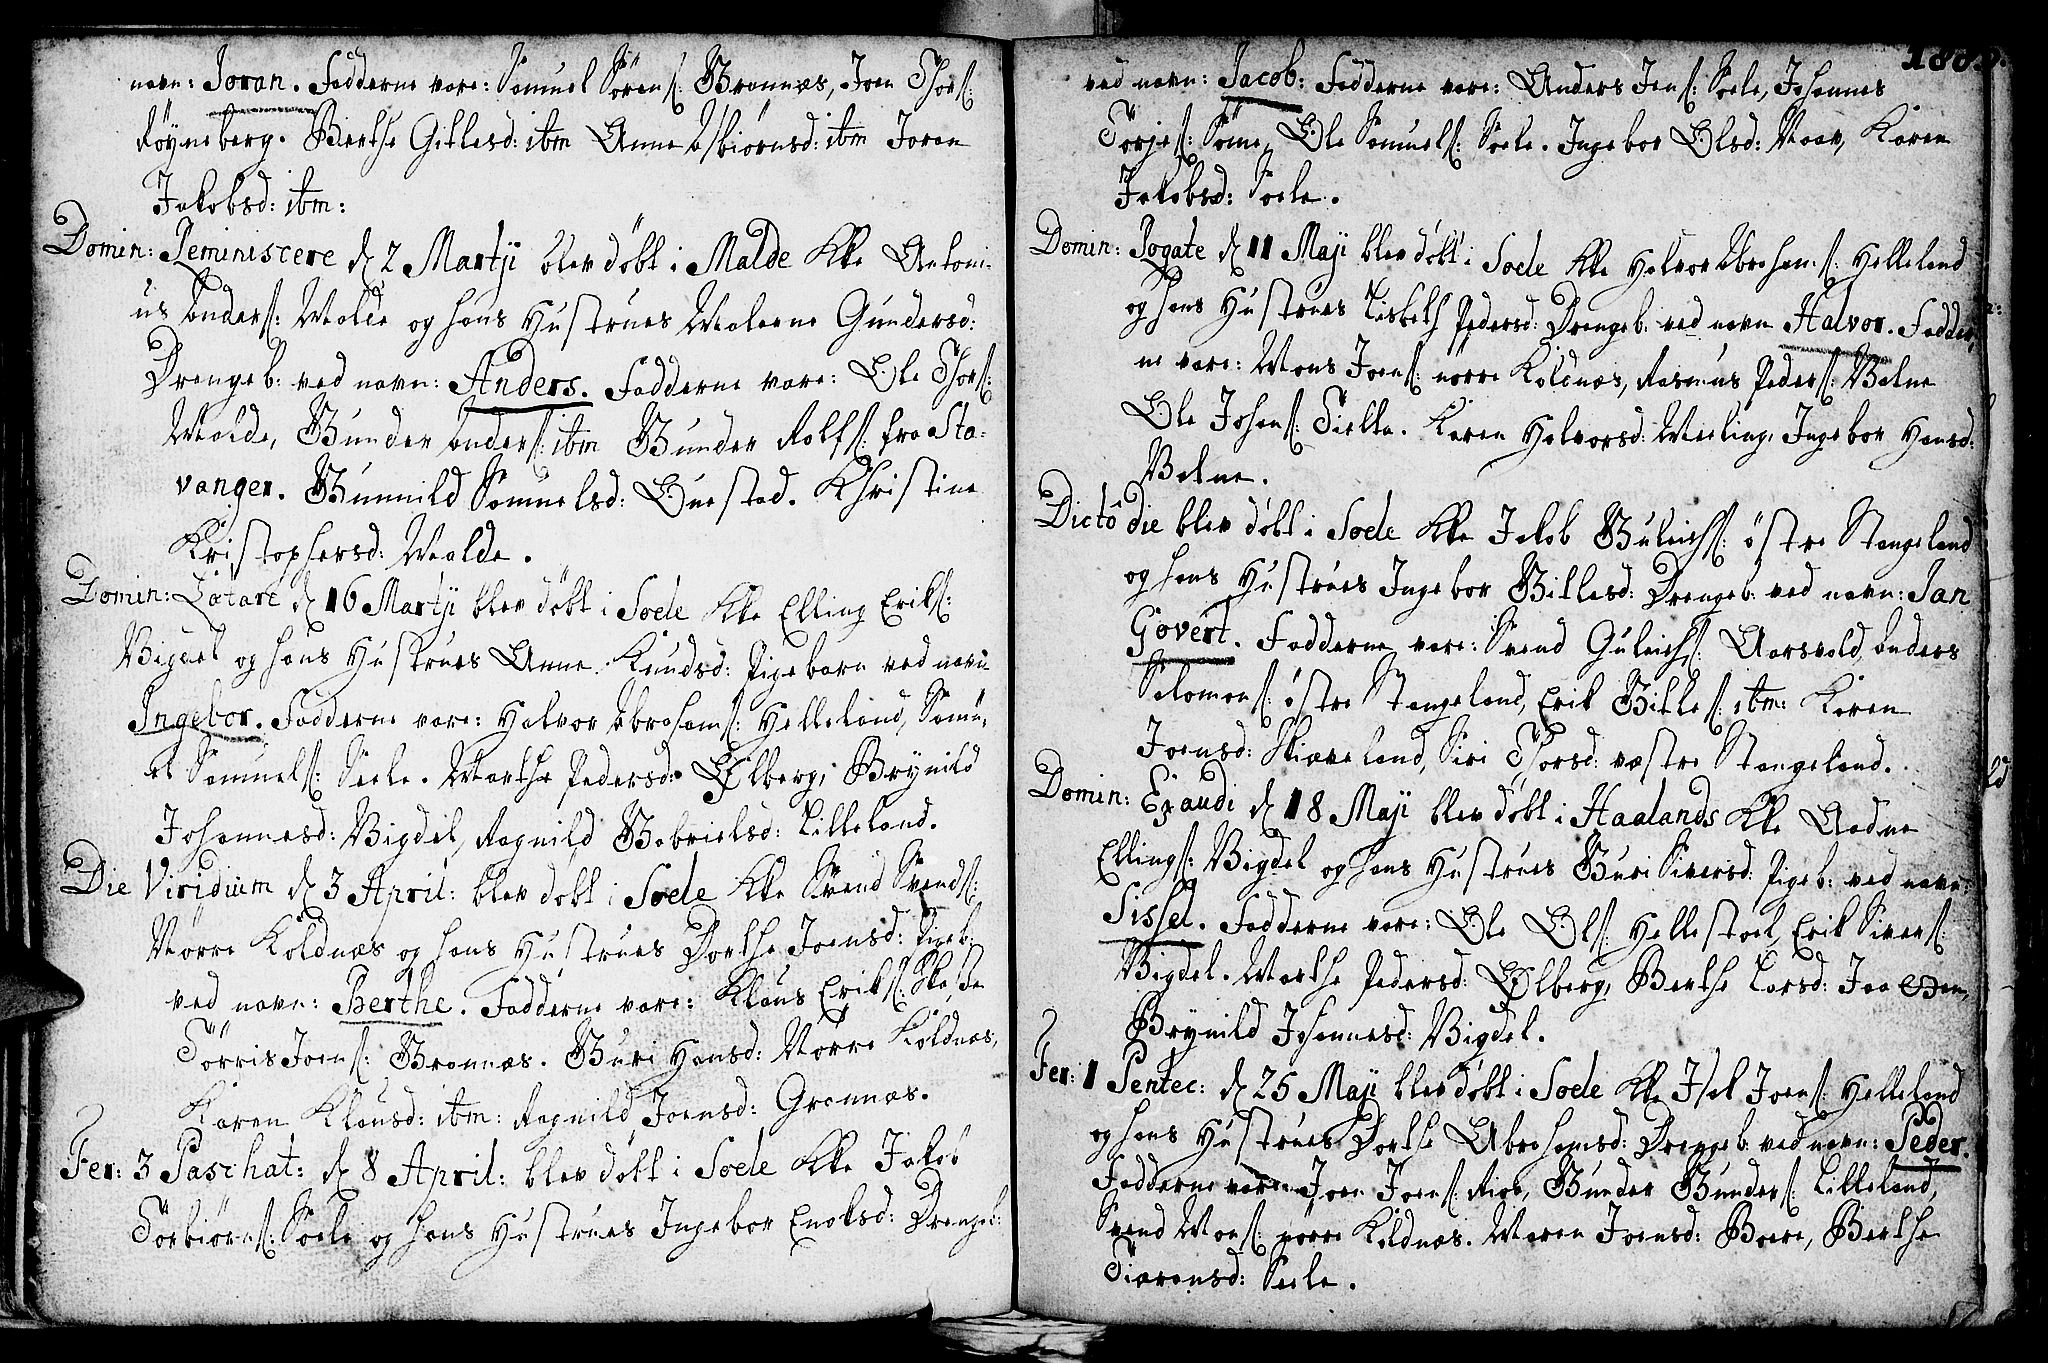 navn: Joran. Fadderne vare: Samuel Sörens: Grannæs, Joen Thors:
Röyneberg. Berthe Gitlesd: ibm Anne Asbiörnsd: ibm Joren
Jakobsd: ibm:
Domin: Reminiscere d. 2 Martji blev döbt i Malde Kke Antoni-
us Anders: Malde og hans Hustrues Malene Gundersd:
Drengeb: ved navn: Anders. Fadderne vare: Ole Thors:
Malde, Gunder Anders: ibm Gunder Rolfs: fra Sta-
vanger. Gunnild Samuelsd: Guestad. Khristine
Kristophersd: Malde.
Domin: Lætare d. 16 Martji blev döbt i Soele Kke Elling Eriks:
Vigdel og hans Hustrues Anne Knudsd: Pigebarn ved navn
Ingebor. Fadderne vare: Halvor Abrahams: Helleland, Samu-
el Samuels: Seele. Marthe Pedersd: Ølberg, Brynild
Johannesd: Vigdel, Ragnild Gabrielsd: Lilleland.
Die Viridium d. 3 April: blev döbt i Soele Kke Svend Svends:
Nörre Koldnæs og hans Hustrues Dorthe Joensd: Pigeb:
ved navn: Berthe. Fadderne vare: Klaus Eriks:
Törris Joens: Grannæs. Guri Hansd: Nörre Koldnæs,
Karen Klausd: ibm: Ragnild Joensd: Grannæs.
Fer: 3 Paschat: d. 8 April: blev döbt i Soele Kke Jakob
Torbiörns: Soele og hans Hustrues Ingebor Enoksd: Drengeb:
ved navn: Jacob: Fadderne vare: Anders Jens: Soele, Johannes
Törjes: Söme, Ole Samuels: Soele. Ingebor Olsd: Karen
Jakobsd: Soele.
Domin: Rogate d. 11 Maji blev döbt i Soele Kke Halvor Abrahams: Helleland
og hans Hustrues Lisbeth Pedersd: Drengeb: ved navn Halvor. Fadder-
ne vare: Mons Joens: nörre Koldnæs, Rasmus Peders:
Ole Johans: Tielta. Karen Halvorsd: Meeling, Ingebor Hansd:
Dictô die blev döbt i Soele Kke Jakob Guleichs: östre Stangeland
og hans Hustrues Ingebor Gitlesd: Drengeb: ved navn: Jan
Govert. Fadderne vare: Svend Guleichs: Aarsvold, Anders
Salomons: östre Stangeland, Erik Gitles: ibm: Karen
Joensd: Skiæveland, Siri Thorsd: væstre Stangeland.
Domin: Exaudi d. 18 Maji blev döbt i Haalands Kke Aadne
Ellings: Vigdel og hans Hustrues Guri Siversd: Pigeb: ved navn:
Sissel. Fadderne vare: Ole Ols: Hellestöel, Erik Sivers:
Vigdel. Marthe Pedersd: Ølberg, Berthe Larsd:
Brynild Johannesd: Vigdel.
Fer: 1 Pentec: d. 25 Maji blev döbt i Soele Kke Isak Joens: Helleland
og hans Hustrues Dorthe Abrahamsd: Drengeb: ved navn: Peder.
Fadderne vare: Joen Joens: Rige, Gunder Gunders: Lilleland,
Svend Mons: nörre Koldnæs. Maren Joensd: Boere, Berthe
Tiæransd: Seele.